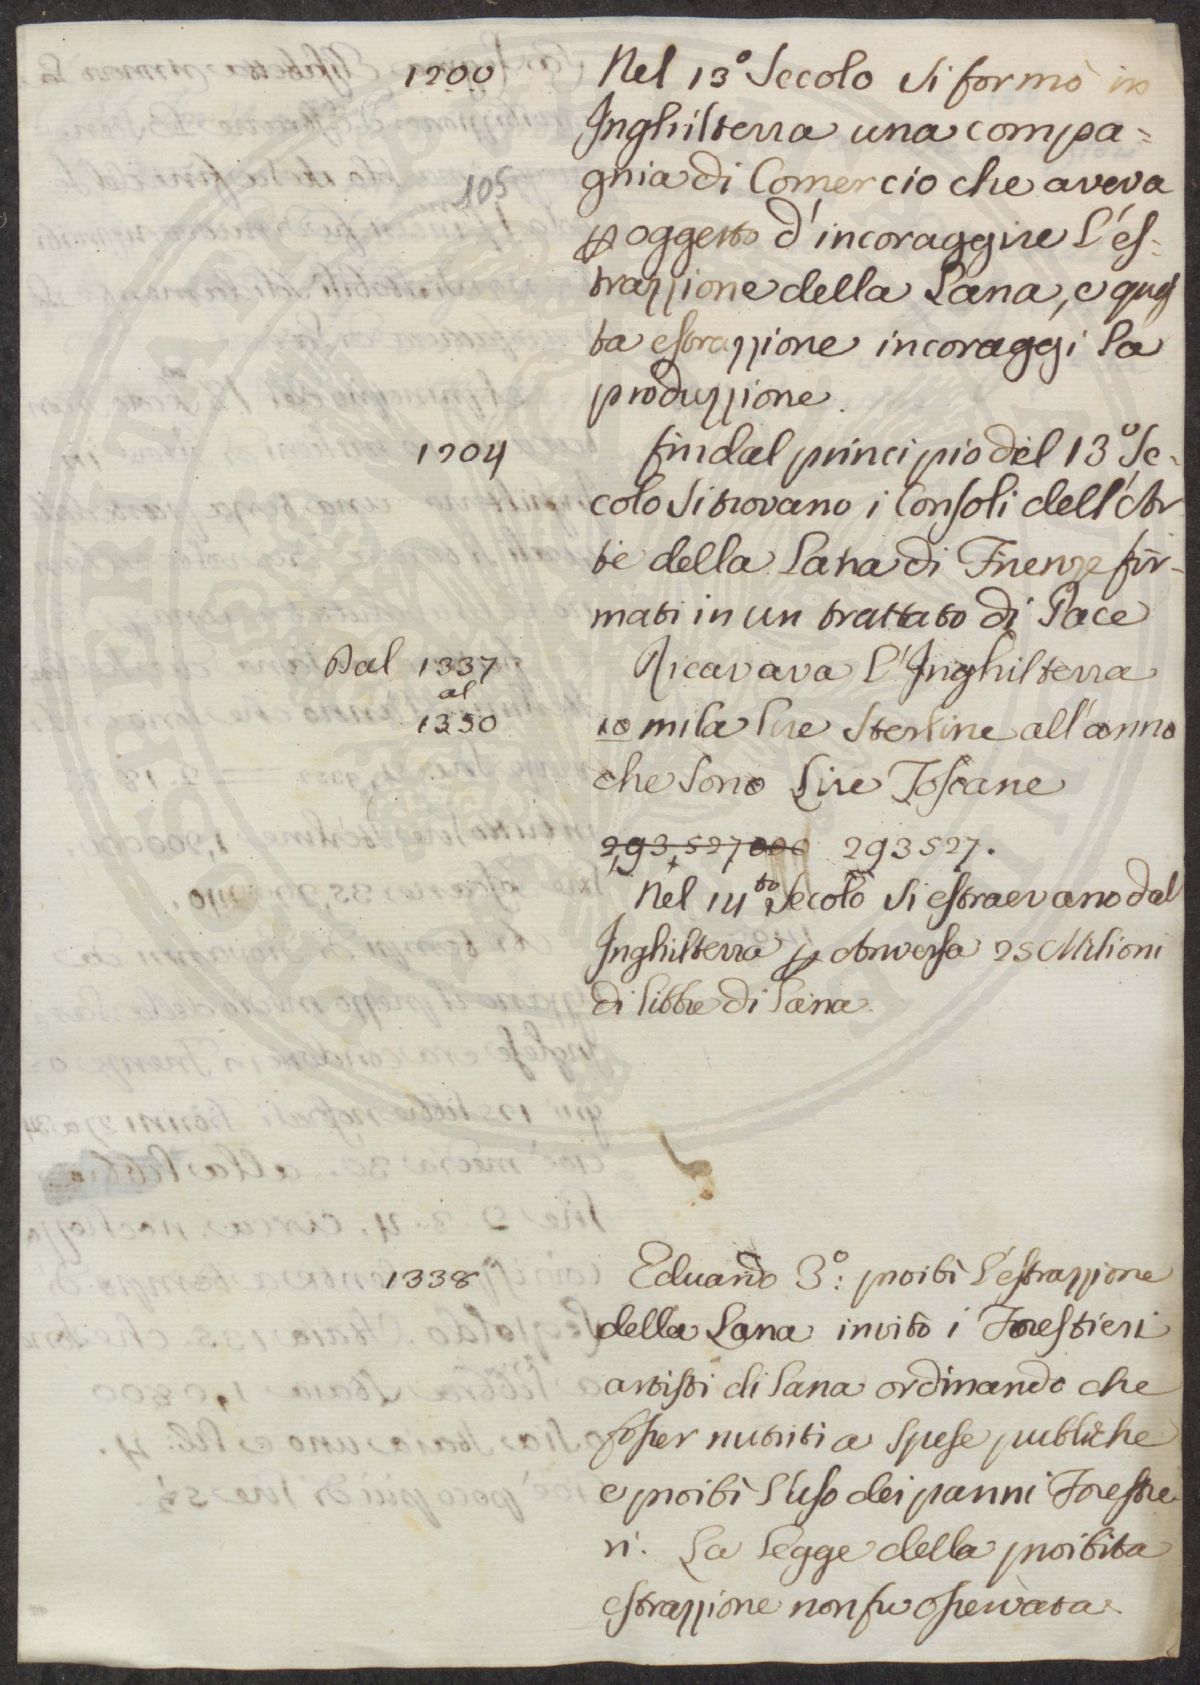 1200
Nel 13º Secolo si formò in
Inghilterra una compa=
gnia di Comercio che aveva
105
p oggetto d'incoraggire l'es=
trazzione della Lana, e ques
ta estrazzione incoraggi la
produzzione.
1204
fin dal principio del 13º Se=
colo si trovano i Consoli dell'Ar
te della Lana di Firenze fir=
mati in un trattato di Pace
Dal 1337
al
1350
Ricavava l'Inghilterra
10 mila lire Sterline all'anno
che sono Lire Toscane
293,527,000 293527.
Nel 14to Secolo si estraevano dal
Inghilterra p Anversa 25 Milioni
di libbre di Lana
1338
Eduardo 3º: proibì l'estrazzione
della Lana invitò i Forestieri
artisti di lana ordinando che
fosser nutriti a spese pubbliche
e proibì l'uso dei panni Forestie
ri. La legge della proibita
estrazzione non fu osservata